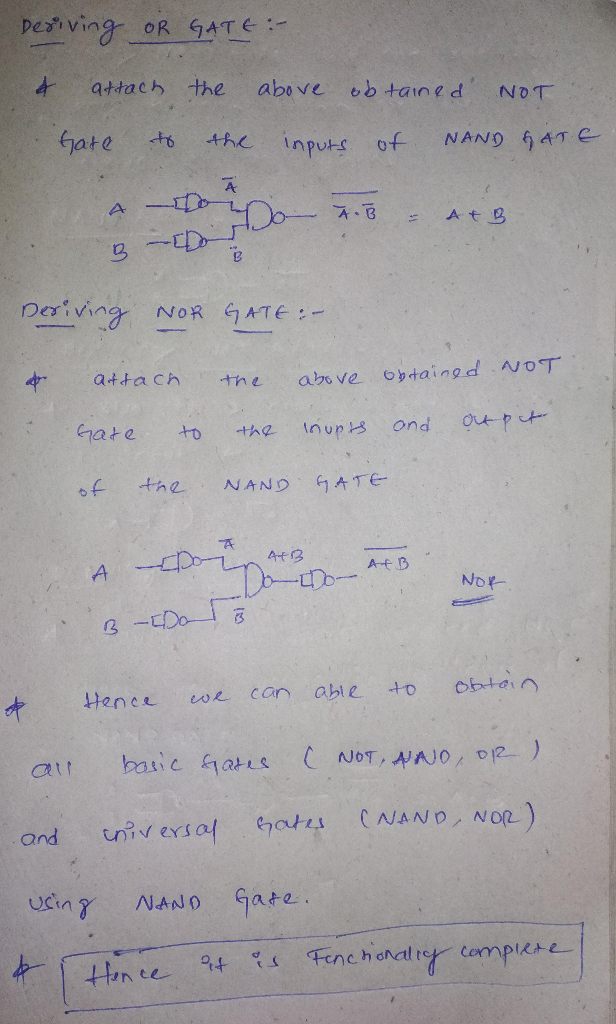 Deriving OR GATE :-
* attach the above obtained NOT
Gate to the inputs of NAND GATE
A Ā
B B̄ \overline{Ā·B̄} = A+B
Deriving NOR GATE :-
* attach the above obtained NOT
Gate to the inupts and output
of the NAND GATE
A Ā A+B \overline{A+B} NOR
B B̄
* Hence we can able to obtain
all basic Gates ( NOT, AND, OR )
and universal Gates (NAND, NOR)
using NAND Gate.
* Hence it is Functionally complete